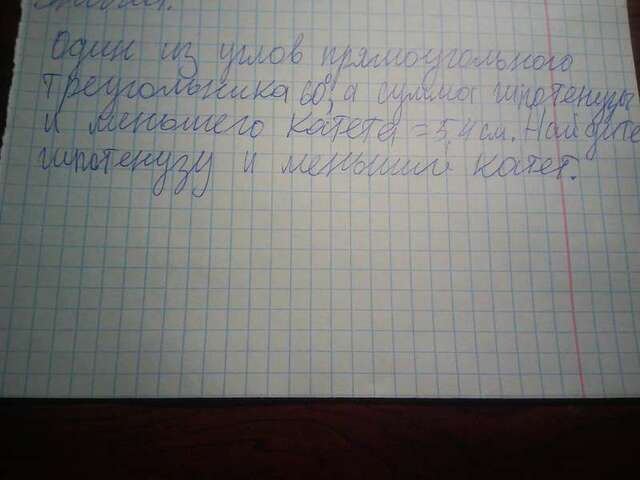 Один из углов прямоугольного
треугольника 60°, а сумма гипотенузы
и меньшего катета = 5,4 см. Найдите
гипотенузу и меньший катет.